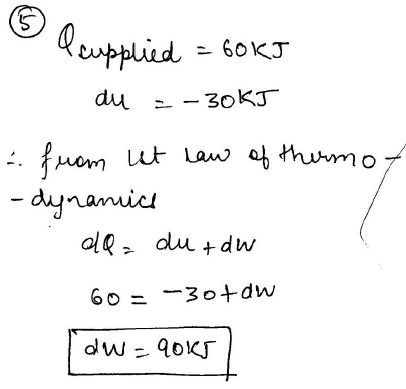 5
Qsupplied = 60KJ
du = -30KJ
∴ from 1st law of thermo-
-dynamics
dQ = du + dw
60 = -30 + dw
dw = 90KJ